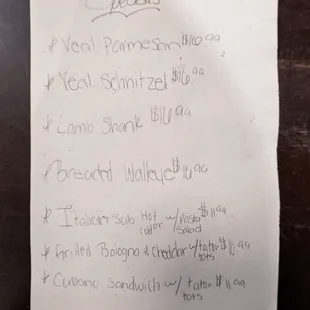 Specials
* Veal Parmesan $16.99
* Veal Schnitzel $16.99
* Lamb Shank $16.99
* Breaded Walleye $16.99
* Italian Sub Hot w/ Pasta $11.99
or Salad
* Grilled Bologna & Cheddar w/ tator $11.99
tots
* Cubano Sandwich w/ tator $11.99
tots